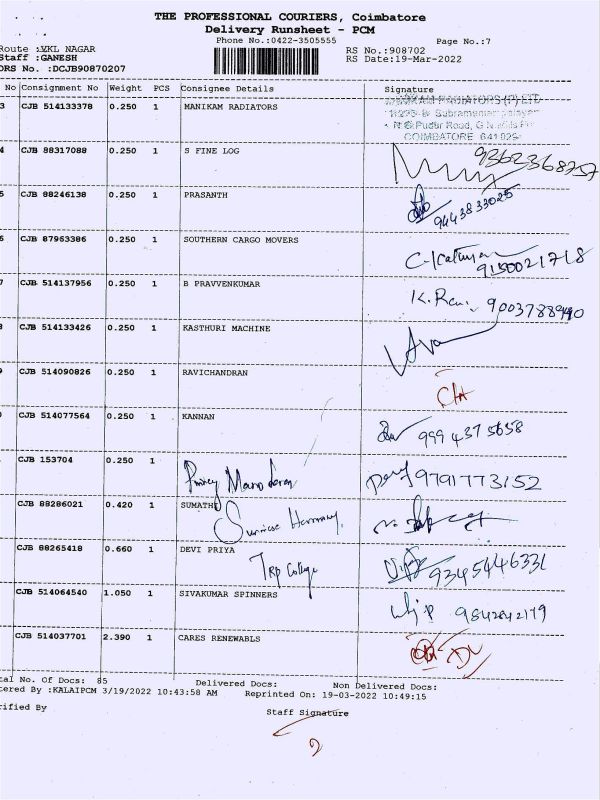 THE PROFESSIONAL COURIERS, Coimbatore
Delivery Runsheet - PCM
Phone No.:0422-3505555 Page No.:7
Route :VKL NAGAR RS No.:908702
Staff :GANESH RS Date:19-Mar-2022
DRS No. :DCJB90870207
No Consignment No Weight PCS Consignee Details Signature
3 CJB 514133378 0.250 1 MANIKAM RADIATORS RADIATORS (P) LTD
Pudur Road, G N
COIMBATORE
4 CJB 88317088 0.250 1 S FINE LOG 9362368757
5 CJB 88246138 0.250 1 PRASANTH 9443833025
6 CJB 87963386 0.250 1 SOUTHERN CARGO MOVERS
9150021718
7 CJB 514137956 0.250 1 B PRAVVENKUMAR K. Ravi. 9003788990
8 CJB 514133426 0.250 1 KASTHURI MACHINE
9 CJB 514090826 0.250 1 RAVICHANDRAN
CJB 514077564 0.250 1 KANNAN 9994375658
CJB 153704 0.250 1 9791773152
CJB 88286021 0.420 1 SUMATHI
Sunrise Harmony.
CJB 88265418 0.660 1 DEVI PRIYA 9345446331
TRP College
CJB 514064540 1.050 1 SIVAKUMAR SPINNERS 9842842179
CJB 514037701 2.390 1 CARES RENEWABLS
tal No. Of Docs: 85 Delivered Docs: Non Delivered Docs:
tered By :KALAIPCM 3/19/2022 10:43:58 AM Reprinted On: 19-03-2022 10:49:15
rified By Staff Signature